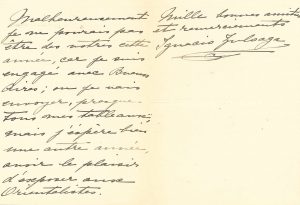 Malheureusement
je ne pourrais pas
être des votres cette
année, car je suis
engagé avec Buenos
Aires; ou je vais
envoyer, presque
tous mes tableaux,
mais j'espère bien
une autre année,
avoir le plaisir
d'exposer aux
Orientalistes.
Mille bonnes amitiés
et remerciements
Ignacio Zuloaga